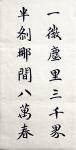 一微塵里三千界
半剎那間八萬春